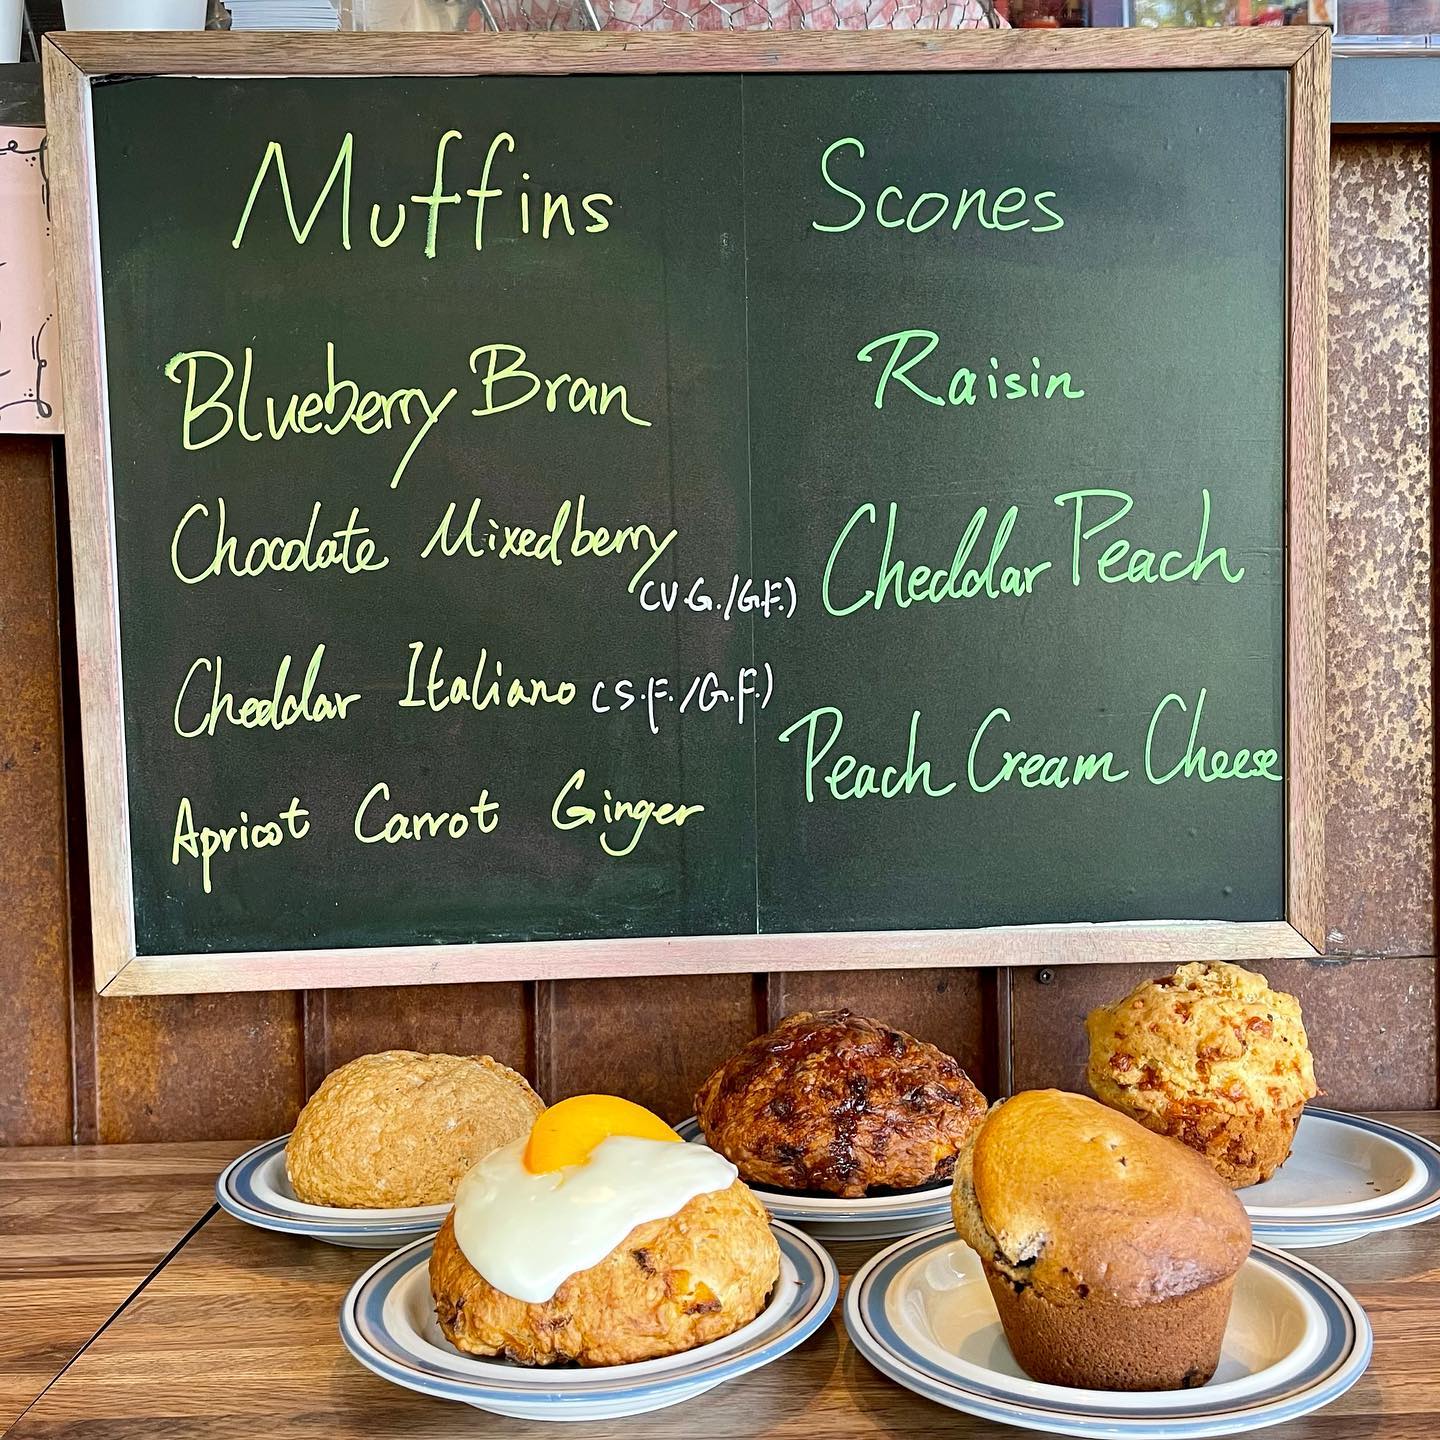 Muffins
Blueberry Bran
Chocolate Mixedberry
(V.G./G.F.)
Cheddar Italiano (S.F./G.F.)
Apricot Carrot Ginger
Scones
Raisin
Cheddar Peach
Peach Cream Cheese